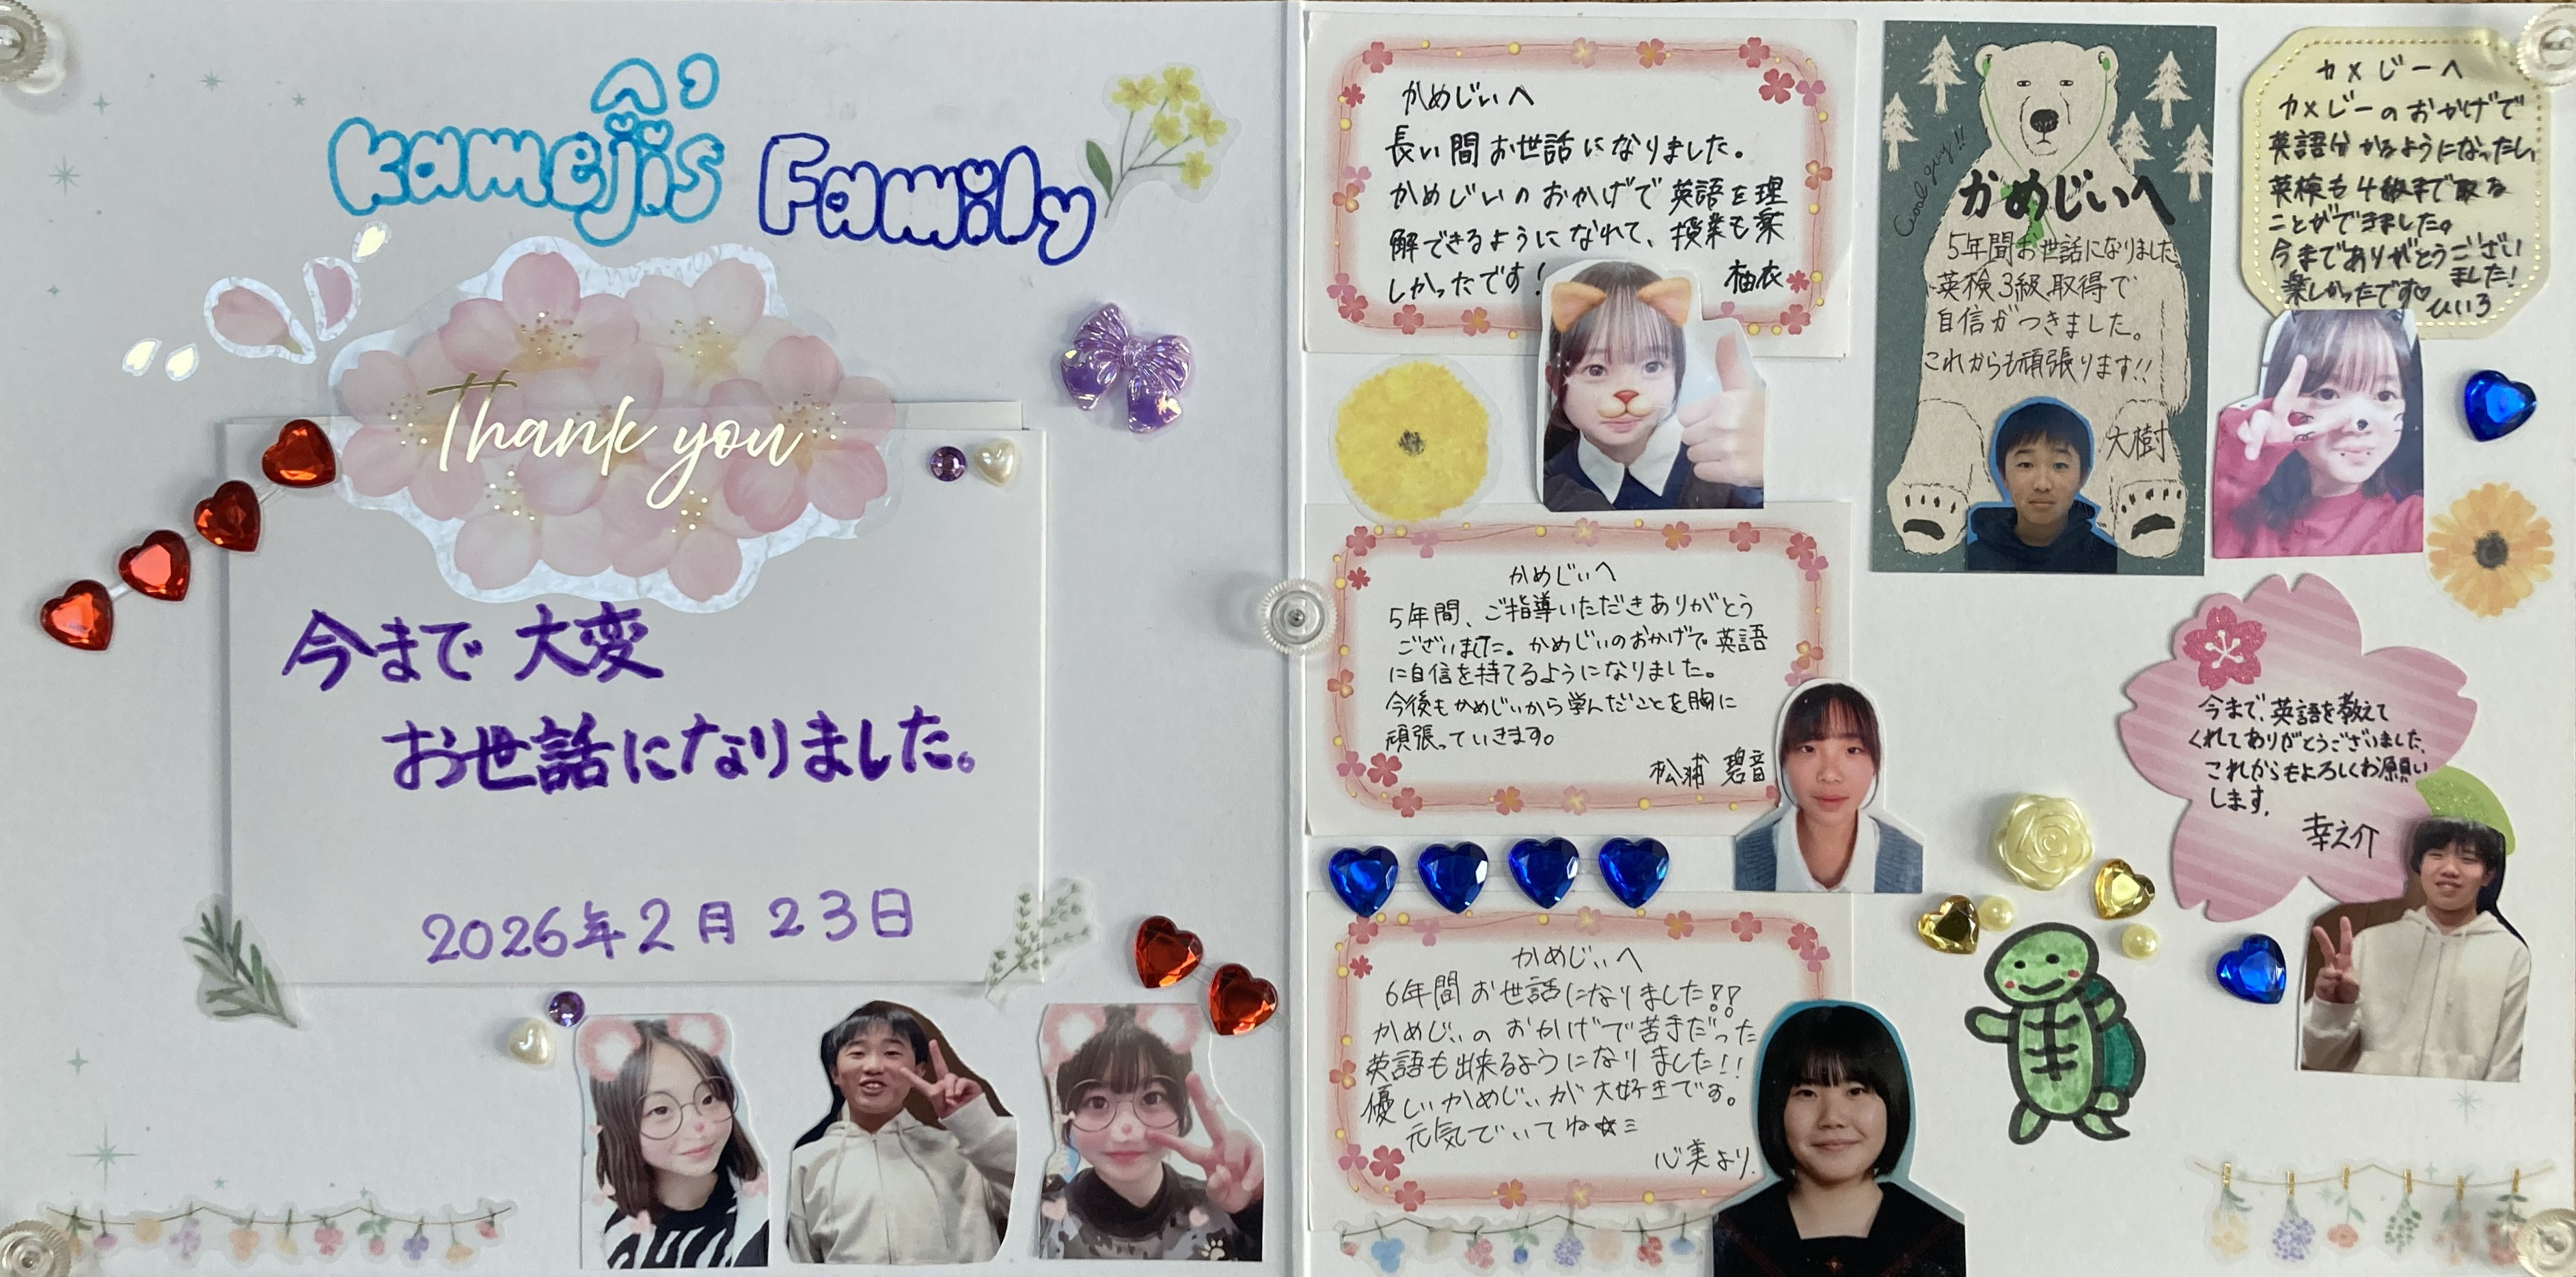 Kameji's Family
Thank you
今まで 大変
お世話になりました。
2026年2月23日
かめじぃへ
長い間お世話になりました。
かめじぃのおかげで英語を理
解できるようになれて、授業も楽
しかったです！
柚衣
Cool guy!!
かめじぃへ
5年間お世話になりました
英検3級取得で
自信がつきました。
これからも頑張ります!!
大樹
カメじーへ
カメじーのおかげで
英語分かるようになったし、
英検も4級まで取る
ことができました。
今までありがとうござい
ました!
楽しかったです♡
ひいろ
かめじぃへ
5年間、ご指導いただきありがとう
ございました。かめじぃのおかげで英語
に自信を持てるようになりました。
今後もかめじぃから学んだことを胸に
頑張っていきます。
松浦 碧音
今まで、英語を教えて
くれてありがとうございました。
これからもよろしくお願い
します。
幸之介
かめじぃへ
6年間お世話になりました!!
かめじぃのおかげで苦手だった
英語も出来るようになりました!!
優しいかめじぃが大好きです。
元気でいてね☆ミ
心美より.